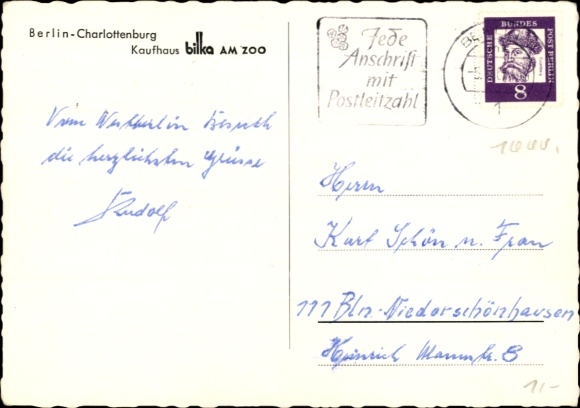 Berlin-Charlottenburg
Kaufhaus bilka AM ZOO
Vom Westberlin Besuch
die herzlichsten Grüsse
Rudolf
Jede
Anschrift
mit
Postleitzahl
BE
1
DEUTSCHE BUNDES POST BERLIN
8
1000.
Herrn
Kurt Schön u. Frau
111 Bln.-Niederschönhausen
Heinrich Mannstr. 8
1,-